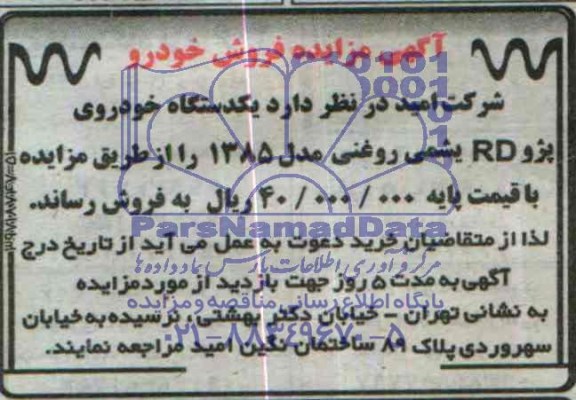 آگهی مزایده فروش خودرو
شرکت امید در نظر دارد یکدستگاه خودروی
پژو RD یشمی روغنی مدل ۱۳۸۵ را از طریق مزایده
با قیمت پایه ۴۰/۰۰۰/۰۰۰ ریال به فروش رساند.
ParsNamadData
لذا از متقاضیان خرید دعوت به عمل می آید از تاریخ درج
مرکز فرآوری اطلاعات پارس نماد داده ها
آگهی به مدت ۵ روز جهت بازدید از مورد مزایده
پایگاه اطلاع رسانی مناقصه و مزایده
به نشانی تهران - خیابان دکتر بهشتی، نرسیده به خیابان
۰۲۱-۸۸۳۴۹۶۷۰-۵
سهروردی پلاک ۸۹ ساختمان نگین امید مراجعه نمایند.